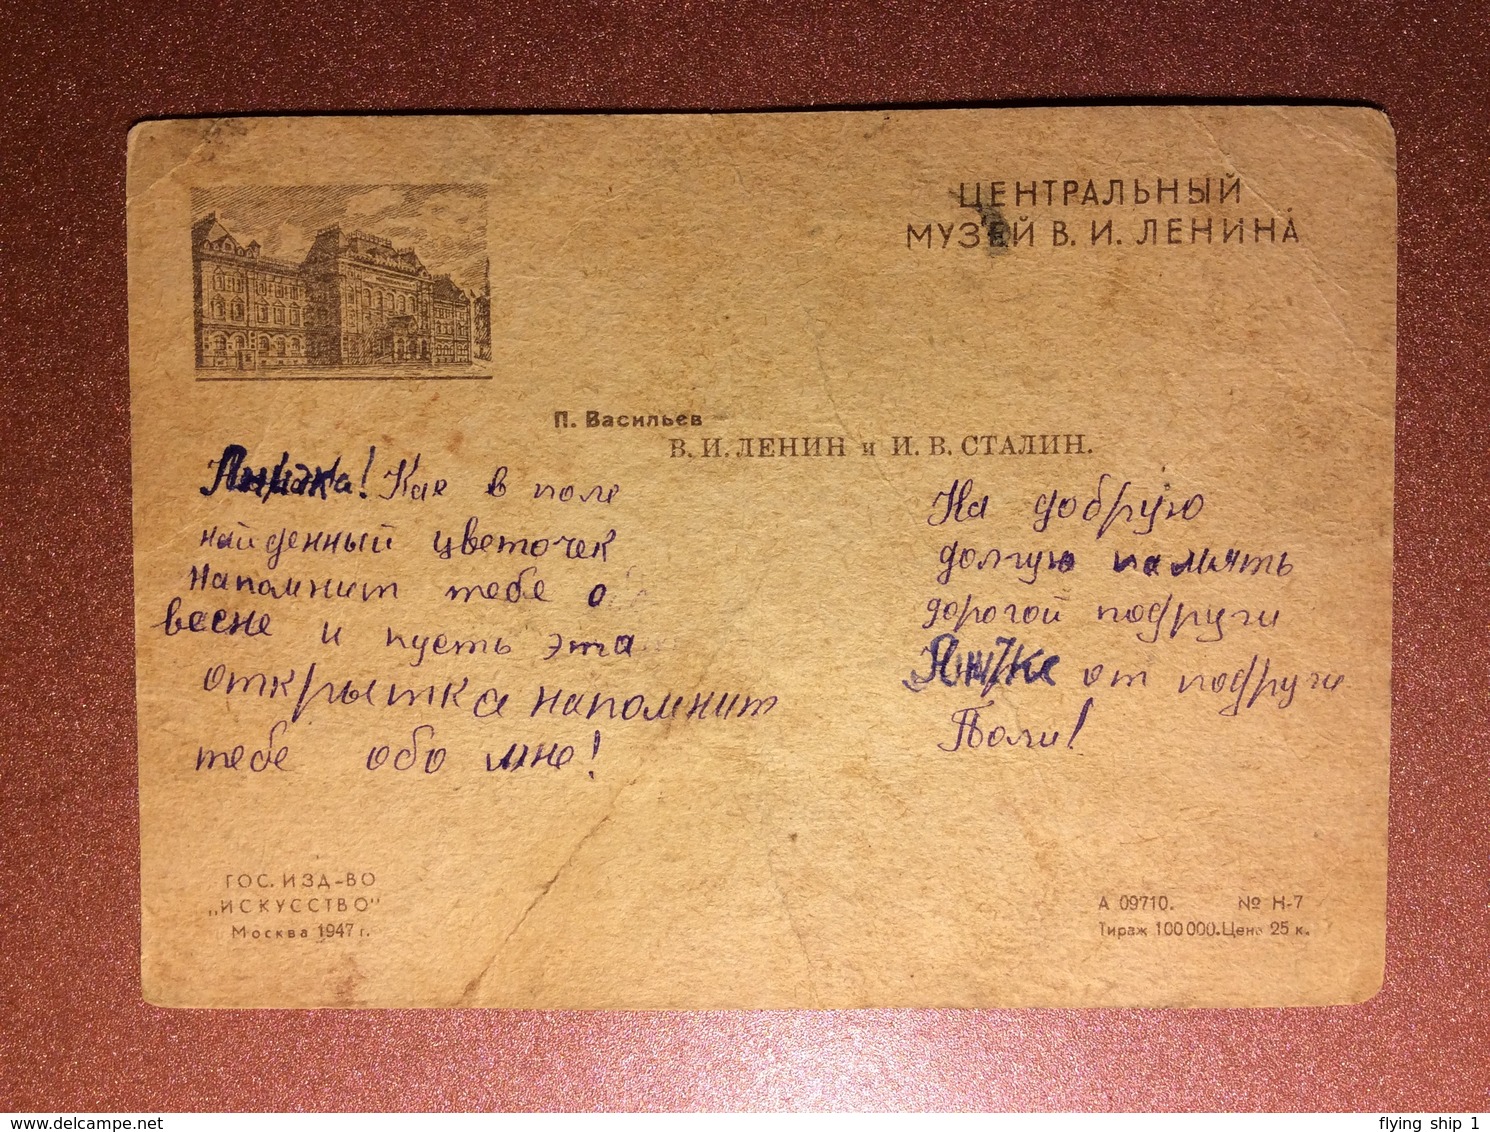 ЦЕНТРАЛЬНЫЙ
МУЗЕЙ В. И. ЛЕНИНА
П. Васильев
В. И. ЛЕНИН и И. В. СТАЛИН.
Как в поле
найденный цветочек
напомнит тебе о
весне и пусть эта
открытка напомнит
тебе обо мне!
На добрую
долгую память
дорогой подруги
от подруги
Поли!
ГОС. ИЗД-ВО
„ИСКУССТВО"
Москва 1947 г.
А 09710. № Н-7
Тираж 100 000. Цена 25 к.
delcampe.net
flying ship 1